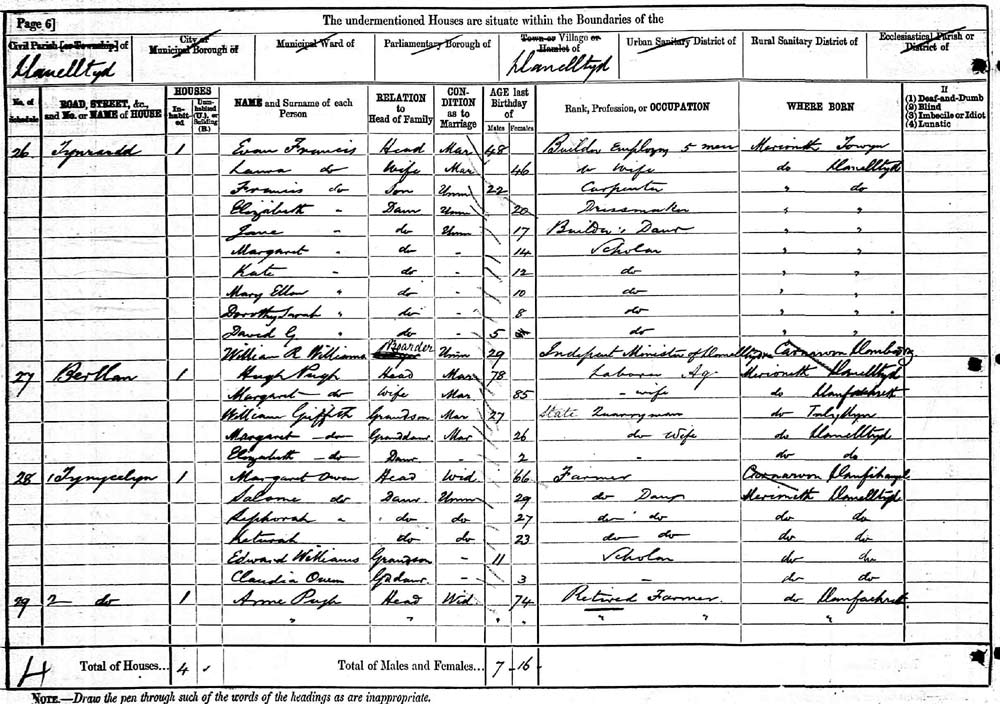 Page 6]
The undermentioned Houses are situate within the Boundaries of the
Civil Parish [or Township] of
City or Municipal Borough of
Municipal Ward of
Parliamentary Borough of
Town or Village or Hamlet of
Urban Sanitary District of
Rural Sanitary District of
Ecclesiastical Parish or District of
Llanelltyd
Llanelltyd
No. of Schedule
ROAD, STREET, &c., and No. or NAME of HOUSE
HOUSES
Inhabited
Uninhabited (U.), or Building (B.)
NAME and Surname of each Person
RELATION to Head of Family
CONDITION as to Marriage
AGE last Birthday of
Males
Females
Rank, Profession, or OCCUPATION
WHERE BORN
If
(1) Deaf-and-Dumb
(2) Blind
(3) Imbecile or Idiot
(4) Lunatic
26 1 Evan Francis Head Mar 48 Builder Employg 5 men Merioneth Towyn
Laura do Wife Mar 46 do Wife do Llanelltyd
Francis do Son Unm 22 Carpenter " do
Elizabeth " Daur Unm 20 Dressmaker " "
Jane " do Unm 17 Builder's Daur " "
Margaret " do - 14 Scholar " "
Kate " do - 12 do " "
Mary Ellen " do - 10 do " "
Dorothy Sarah " do - 8 do " "
David G " do - 5 do " "
William R Williams Boarder Unm 29 Independt Minister of Llanelltyd Carnarvon
27 Berllan 1 Hugh Pugh Head Mar 78 Laborer Ag Merioneth Llanelltyd
Margaret do Wife Mar 85 - wife do Llanfachreth
William Griffith Grandson Mar 27 Slate Quarryman do Talyllyn
Margaret do Granddaur Mar 26 do Wife do Llanelltyd
Elizabeth do Daur - 2 - do do
28 1 Tynycelyn 1 Margaret Owen Head Wid 66 Farmer Carnarvon Llanfihangel
Salome do Daur Unm 29 do Daur Merioneth Llanelltyd
Sephorah " do do 27 do do do do
Keturah do do 23 do do do do
Edward Williams Grandson - 11 Scholar do do
Claudia Owen Gd daur - 3 - do do
29 2 do 1 Anne Pugh Head Wid. 74 Retired Farmer. do Llanfachreth
" " " " " " "
4 Total of Houses... 4 Total of Males and Females... 7 - 16
NOTE.—Draw the pen through such of the words of the headings as are inappropriate.